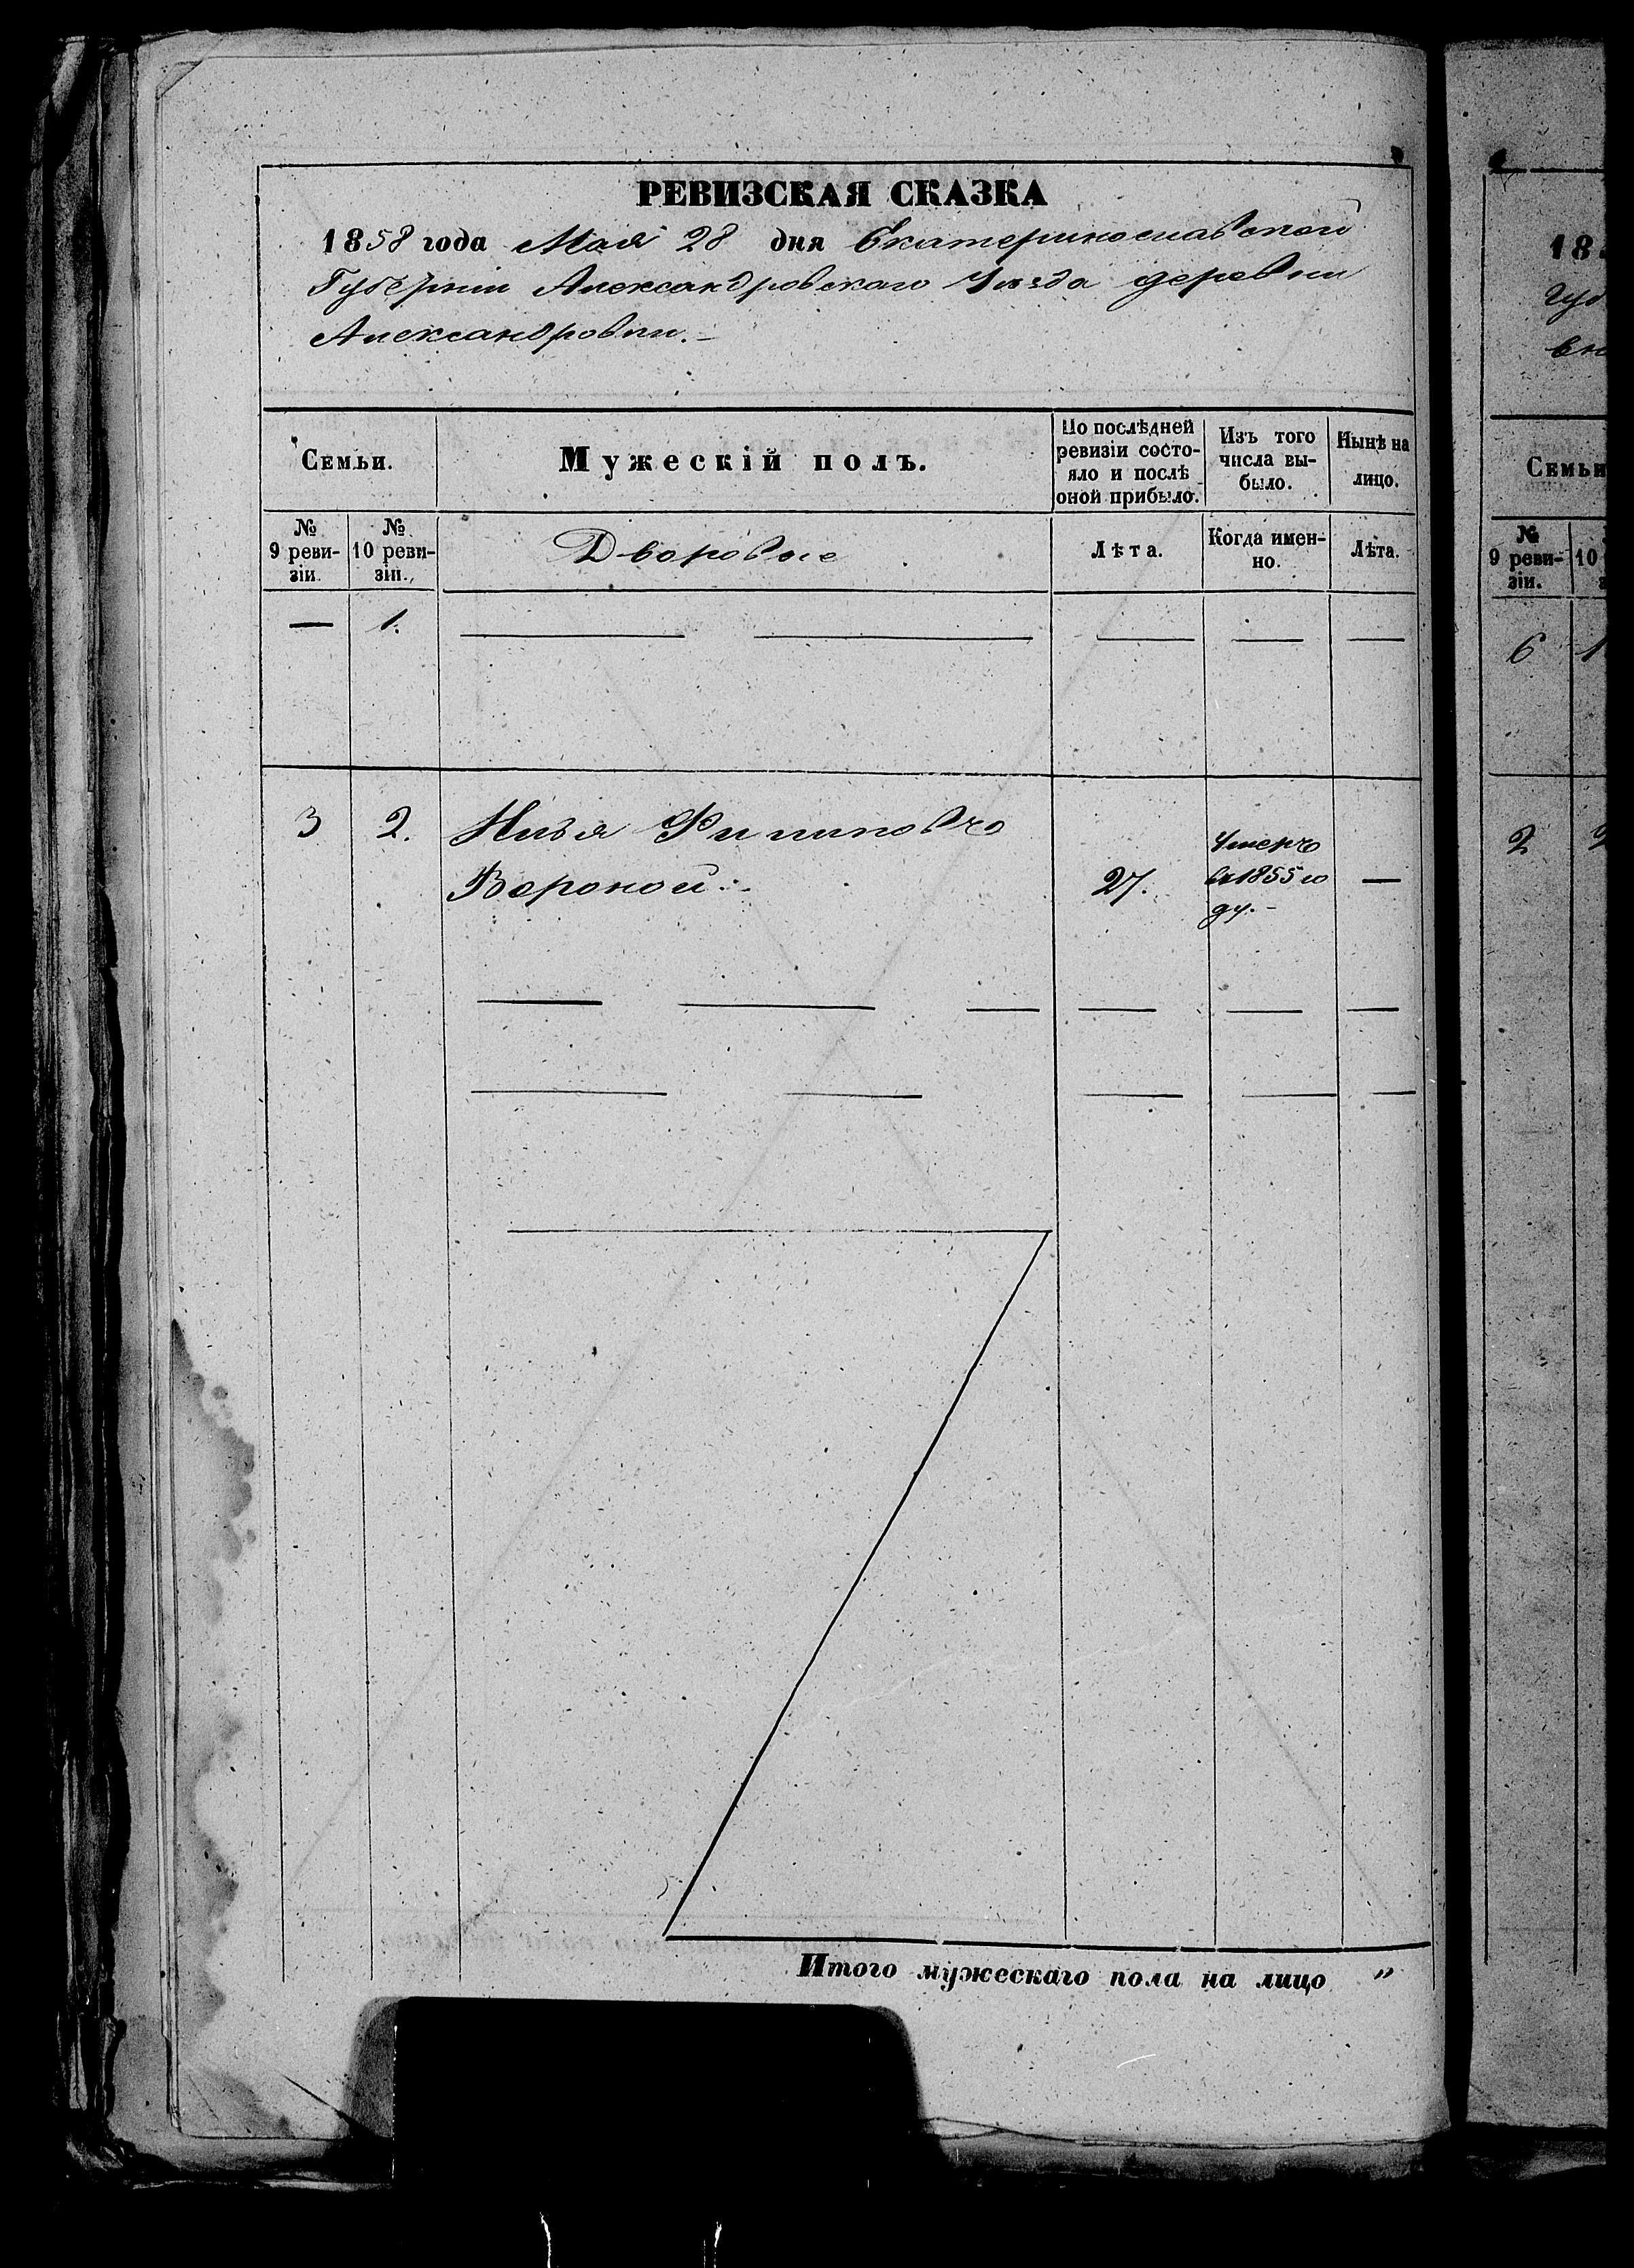 РЕВИЗСКАЯ СКАЗКА
1858 года Мая 28 дня Екатеринославской
Губерніи Александровскаго Уѣзда деревни
Александровки.
Семьи.
Мужескій полъ.
По послѣдней
ревизіи состо-
яло и послѣ
оной прибыло.
Изъ того
числа вы-
было.
Нынѣ на
лицо.
№
9 реви-
зіи.
№
10 реви-
зіи.
Дворовые
Лѣта.
Когда имен-
но.
Лѣта.
— 1.
3 2. Илья Филиповъ
Вороной. 27. —
Умеръ
въ 1855 го
ду.
Итого мужескаго пола на лицо "
18
Губ
Семьи
№
9 реви-
зіи.
10
6 1
2 2